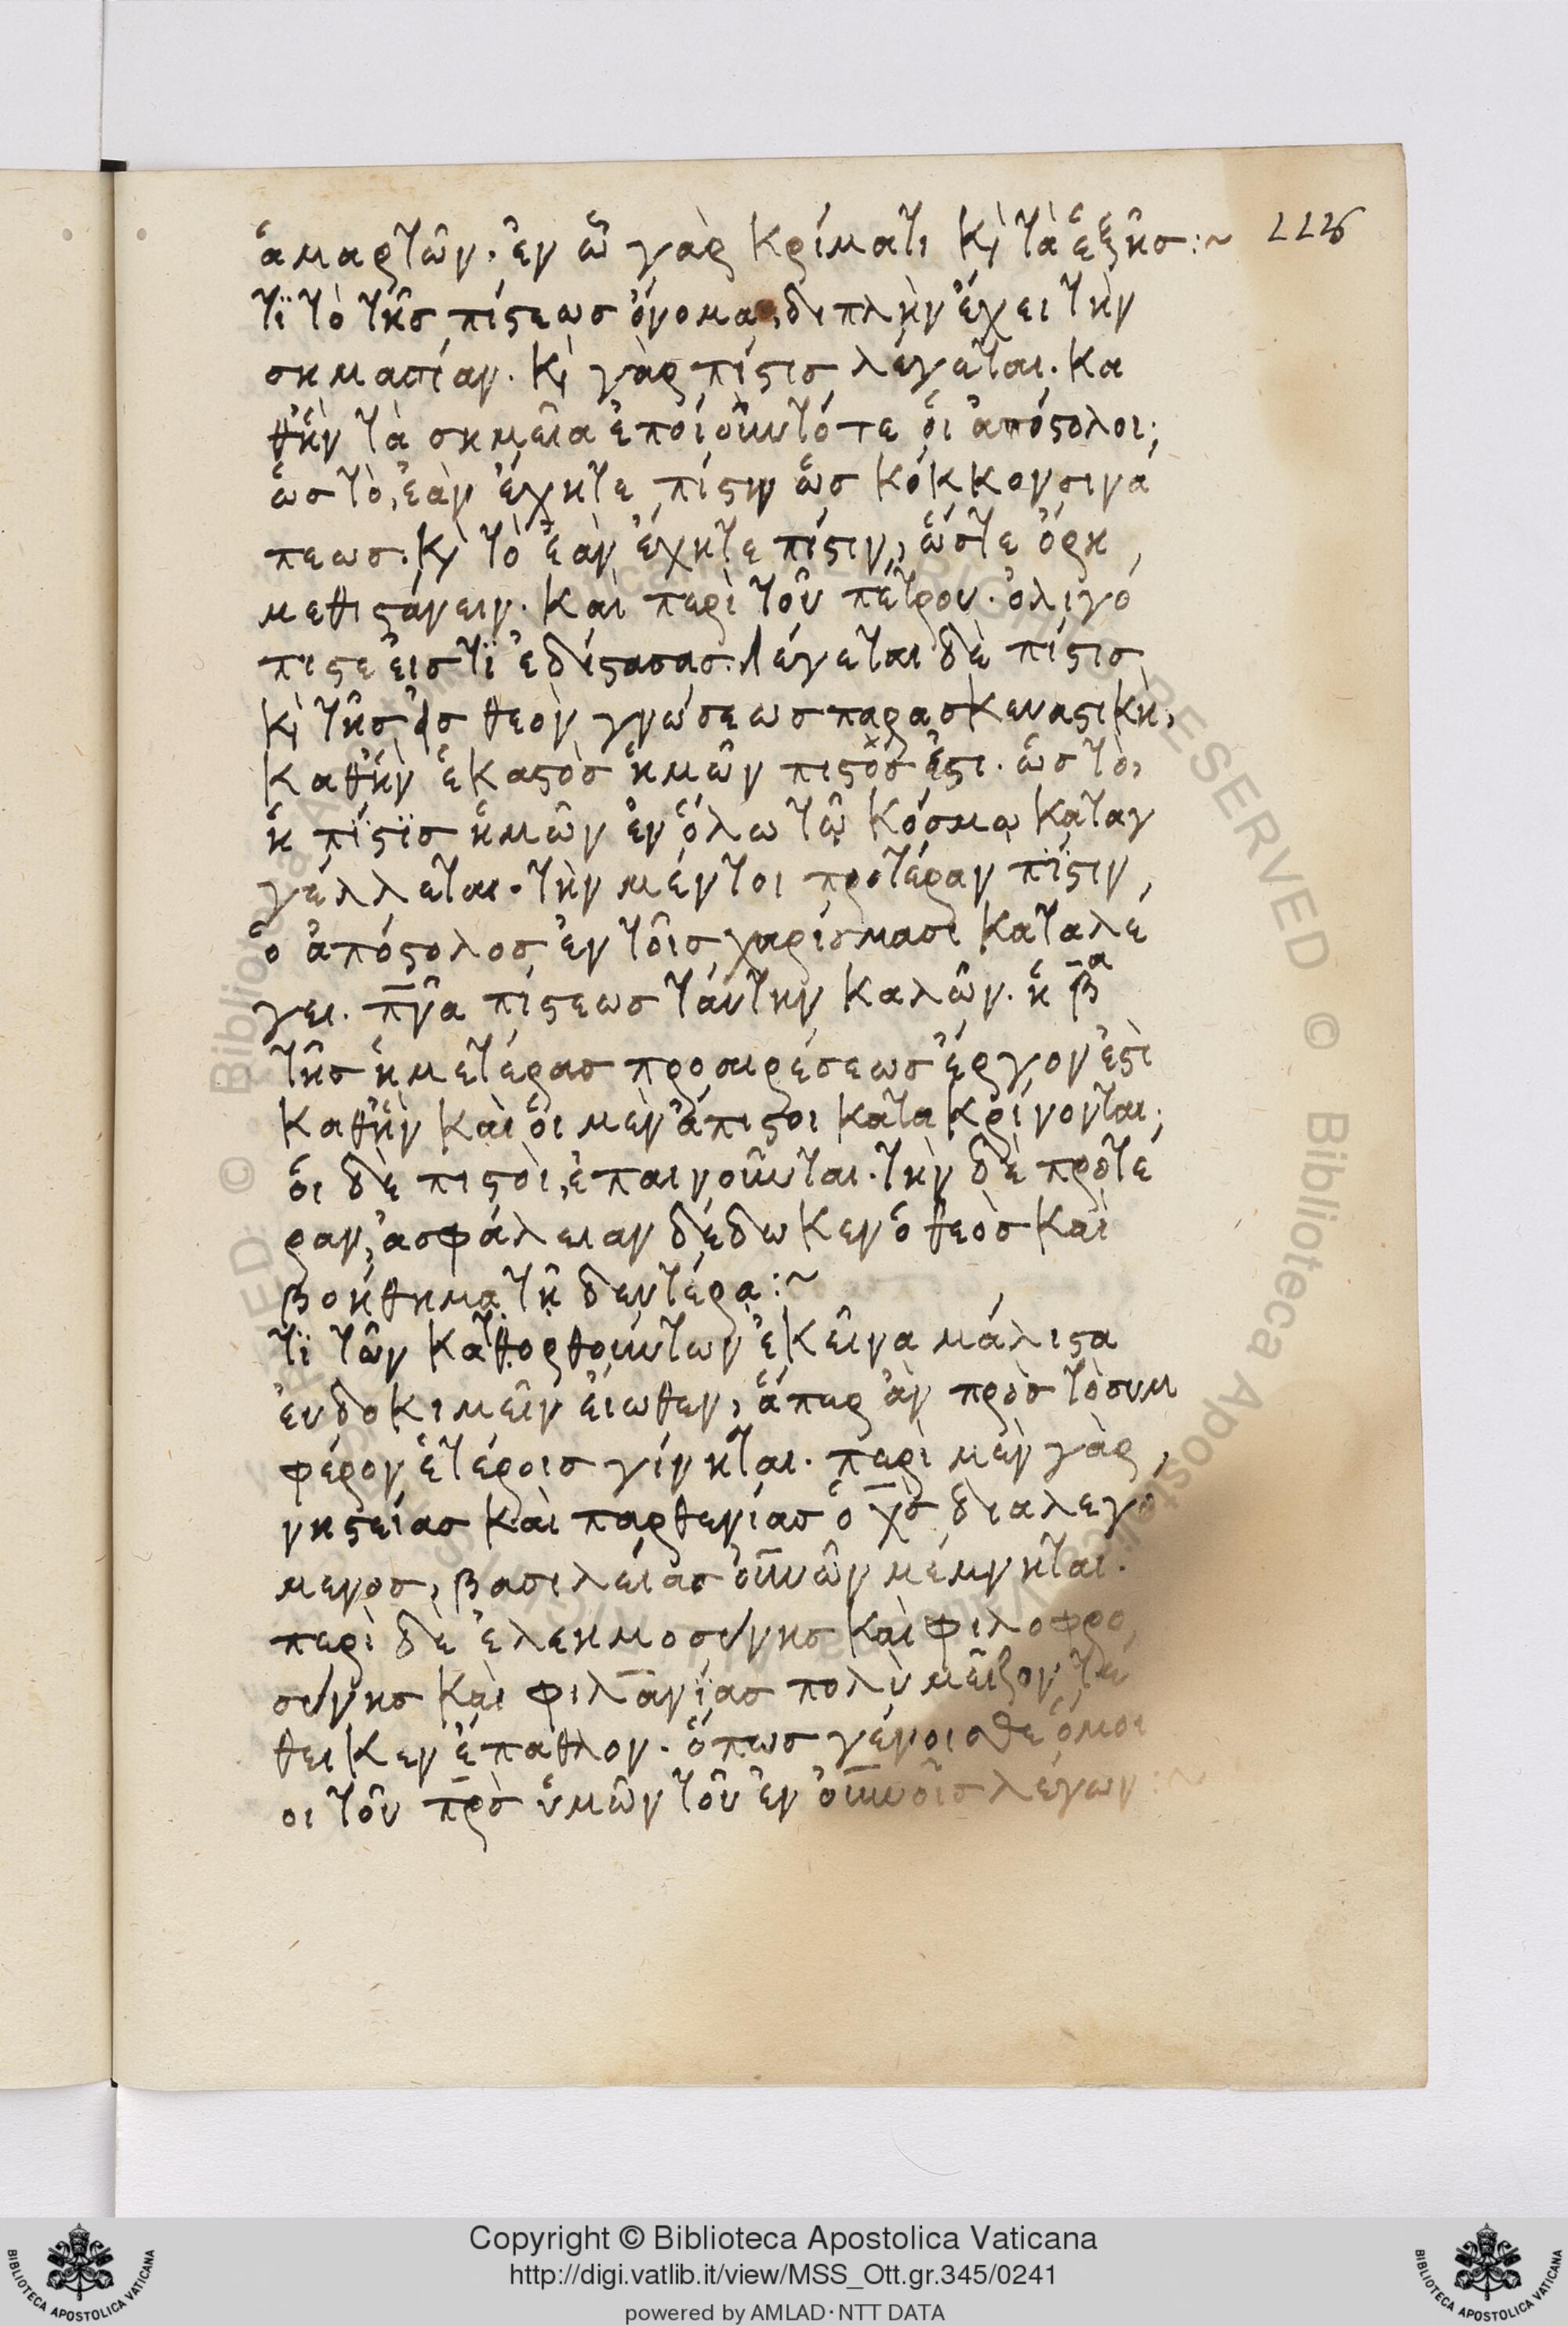 ἁμαρτῶν. ἐν ᾧ γὰρ κρίματι κ̀ τὰ ἑξῆσ:~ 226
Τί τὸ τῆσ πίϛεωσ ὄνομα, διπλὴν ἔχει τὴν
σημασίαν. κ̀ γὰρ πίϛισ λέγεται. κα
θἣν τὰ σημεῖα ἐποίουν τότε ὁι ἀπόϛολοι;
ὡσ τὸ, ἐὰν ἔχητε πίϛιν ὡσ κόκκον σινά
πεωσ. κ̀ τὸ ἐὰν ἔχητε πίϛιν, ὥστε ὄρη
μεθιϛάνειν. καὶ περὶ τοῦ πέτρου. ὀλιγό
πιϛε ἐισ τί ἐδίϛασασ. λέγεται δὲ πίϛισ
κ̀ τῆσ ἐισ θεὸν γνώσεωσ παρασκευαϛικὴ,
καθἣν ἕκαϛὸσ ἡμῶν πιϛόσ ἐϛι. ὡσ τὸ,
ἡ πίϛϊσ ἡμῶν ἐν ὅλω τῷ κόσμῳ καταγ
γέλλεται. τὴν μέντοι προτέραν πίϛιν,
ὁ ἀπόϛολοσ ἐν τοῖσ χαρίσμασι καταλέ
γει. πν̅α πίϛεωσ ταύτην καλῶν. ἡ β̅α
τῆσ ἡμετέρασ προαιρέσεωσ ἔργον ἐϛὶ
καθἣν καὶ ὁι μὲν ἄπιϛοι κατακρίνονται;
ὁι δὲ πιϛοὶ, ἐπαινοῦνται. τὴν δὲ προτέ
ραν, ἀσφάλειαν δέδωκεν ὁ θεὸσ καὶ
βοήθημα τῇ δευτέρᾳ:~
Τί τῶν κατορθούντων ἐκεῖνα μάλιϛα
ἐυδοκιμεῖν ἐίωθεν, ἅπερ ἂν πρὸσ τὸ συμ
φέρον ἑτέροισ γίνηται. περὶ μὲν γὰρ
νηϛείασ καὶ παρθενίασ ὁ χ̅σ διαλεγό
μενοσ, βασιλείασ ὀυ̅νῶν μέμνηται.
περὶ δὲ ἐλεημοσύνησ καὶ φιλοφρο
σύνησ καὶ φιλα̅νίασ πολὺ μεῖζον τέ
θεικεν ἔπαθλον. ὅπωσ γένοισθε ὅμοι
οι τοῦ π̅ρσ ὑμῶν τοῦ ἐν ὀυ̅νοῖσ λέγων:~
© Biblioteca Apostolica Vaticana
Copyright © Biblioteca Apostolica Vaticana
http://digi.vatlib.it/view/MSS_Ott.gr.345/0241
powered by AMLAD·NTT DATA
BIBLIOTECA APOSTOLICA VATICANA
BIBLIOTECA APOSTOLICA VATICANA